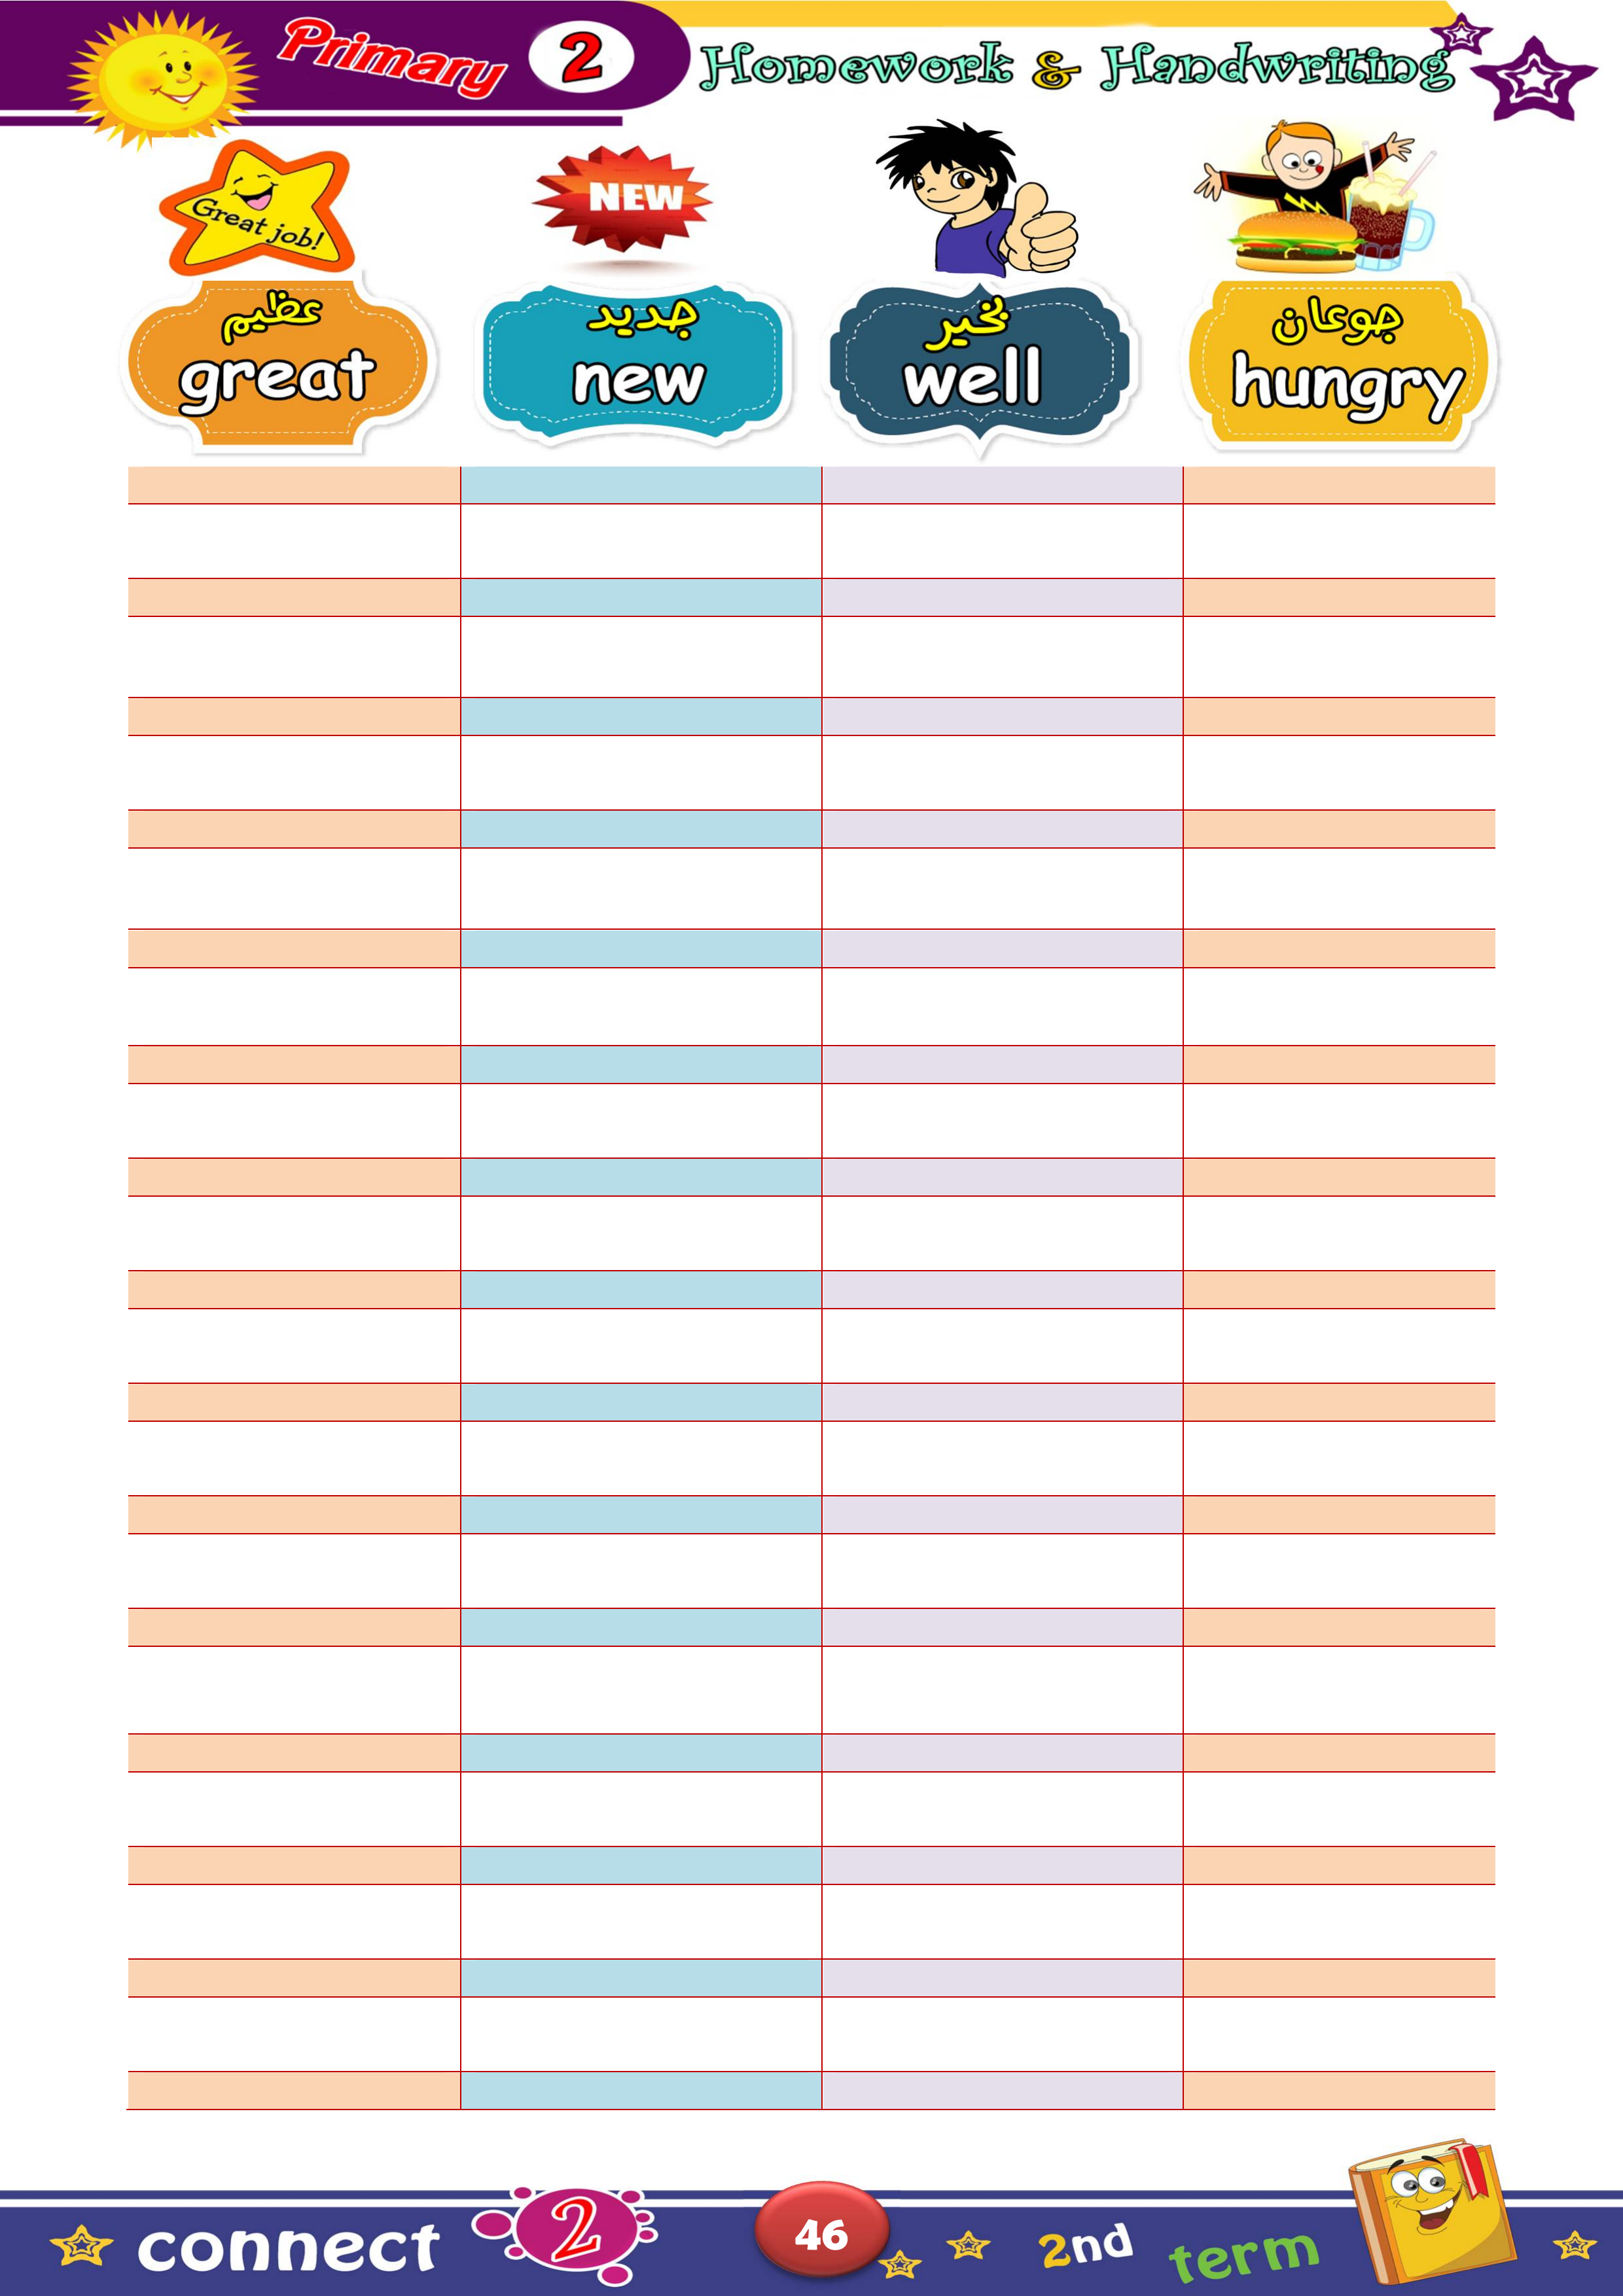 Primary 2 Homework & Handwriting
Great job!
NEW
عظيم
great
جديد
new
بخير
well
جوعان
hungry
connect 2 46 2nd term